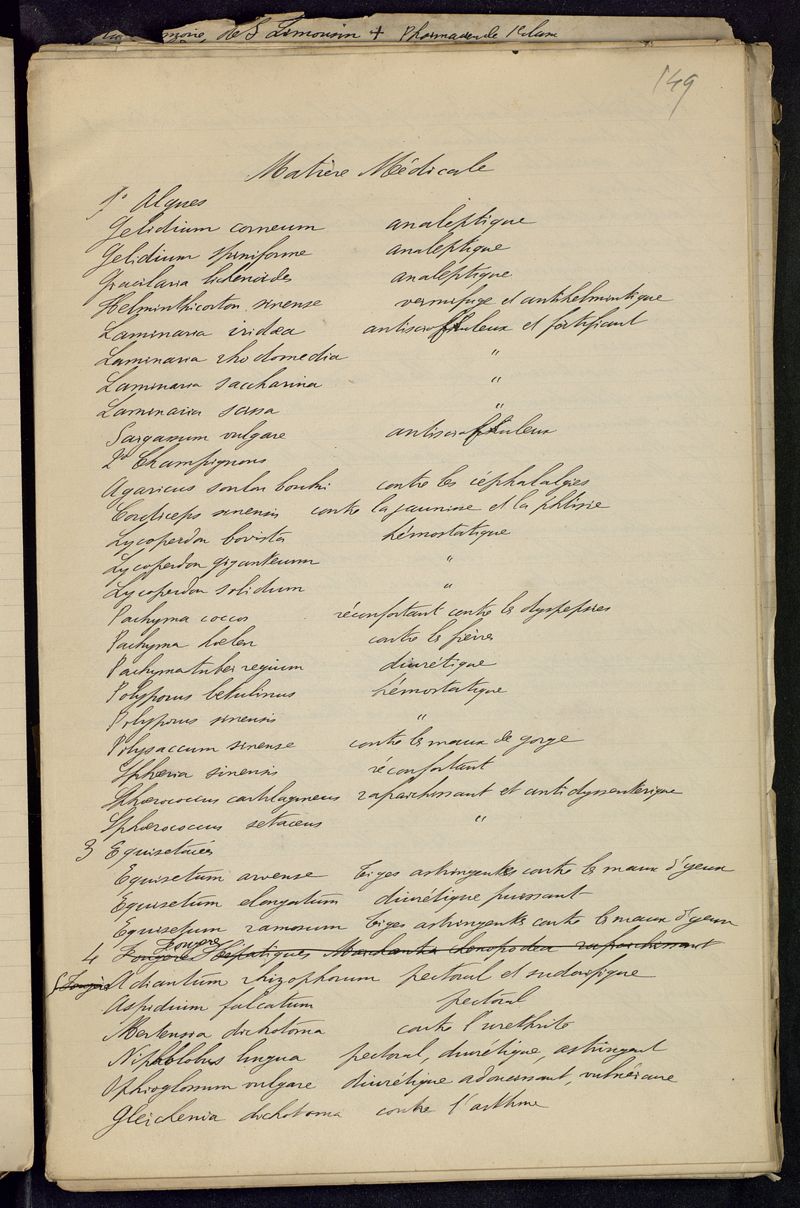 de S Limousin + Pharmacien de 1e classe
149
Matière Médicale
1° Algues
Gelidium corneum analeptique
Gelidium spiniforme analeptique
Gracilaria lichenoides analeptique
Helminthicorton sinense vermifuge et antihelmintique
Laminaria iridæa antiscrofuleux et fortifiant
Laminaria rhodomedia "
Laminaria saccharina "
Laminaria scissa "
Sargassum vulgare antiscrofuleux
2° Champignons
Agaricus contre les céphalalgies
Cordiceps sinensis contre la jaunisse et la phtisie
Lycoperdon bovista hémostatique
Lycoperdon giganteum "
Lycoperdon solidum "
Pachyma cocos réconfortant contre les dyspepsies
Pachyma hoelen contre les fièvres
Pachyma tuber regium diurétique
Polyporus betulinus hémostatique
Polyporus sinensis "
Polysaccum sinense contre les maux de gorge
Sphæria sinensis réconfortant
Sphærococcus cartilagineus rafraichissant et antidyssenterique
Sphærococcus setaceus "
3 Equisetacées
Equisetum arvense tiges astringentes contre les maux d'yeux
Equisetum elongatum diurétique puissant
Equisetum ramosum tiges astringentes contre les maux d'yeux
4 Fougère Fougères Hépatiques Marchantia chenopodea rafraichissant
5 Fougères Adiantum rhizophorum pectoral et sudorifique
Aspidium falcatum pectoral
Mertensia dichotoma contre l'urethrite
Niphobolus lingua pectoral, diurétique, astringent
Ophioglossum vulgare diurétique adoucissant, vulnéraire
Gleichenia dichotoma contre l'asthme